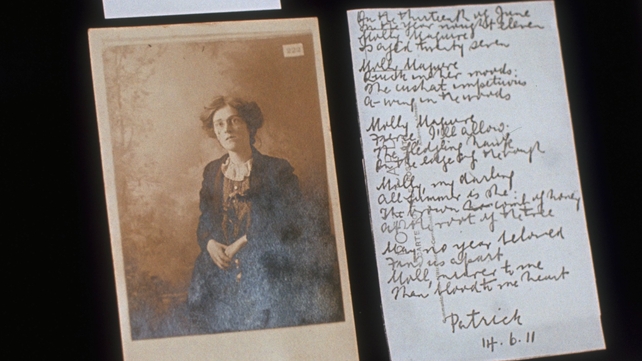 On the thirteenth of June
In the year nought eleven
Molly Maguire
Is aged twenty seven
Molly Maguire
Quick in her moods:
The cushat impetuous
A-wing in the woods
Molly Maguire
Fierce, I'll allow.
The fledgling hawk
On the edge of the bough
Molly, my darling
All summer is she:
The brown of honey
At the root of the tree
May no year beloved
Find us apart
Moll, nearer to me
Than blood to me heart
Patrick
14.6.11